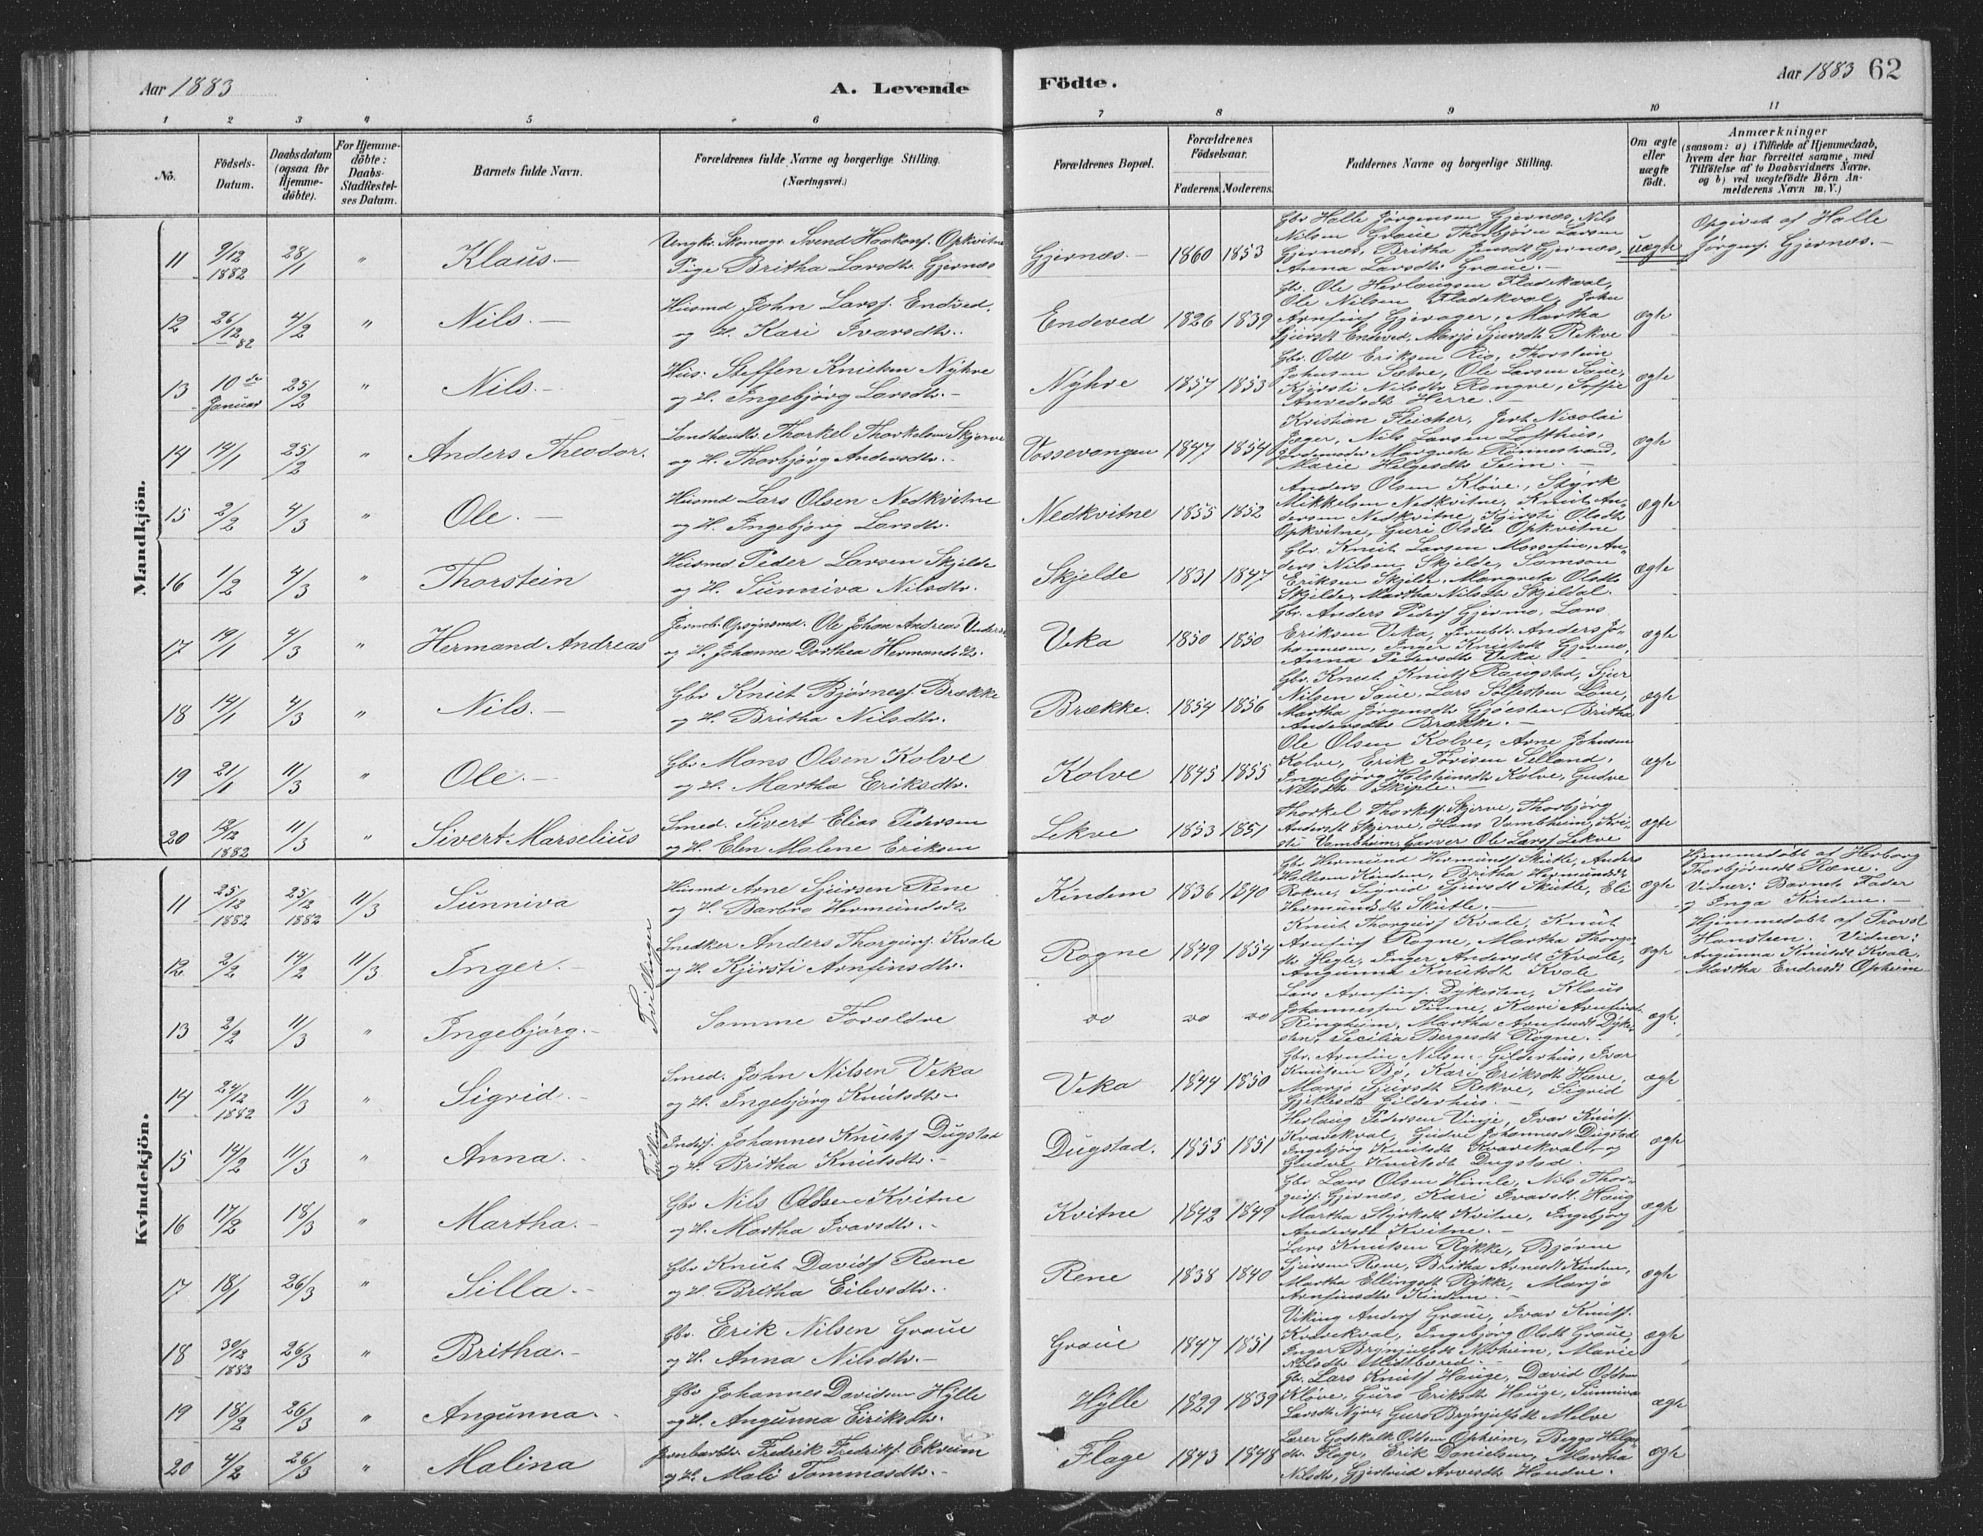 Aar 1883
A. Levende
Födte.
Aar 1883 62
1 2 3 4 5 6 7 8 9 10 11
No.
Födsels-
Datum.
Daabsdatum
(ogsaa for
Hjemme-
döbte).
For Hjemme-
döbte:
Daabs-
Stadfæstel-
ses Datum.
Barnets fulde Navn.
Forældrenes fulde Navne og borgerlige Stilling.
(Næringsvei.)
Forældrenes Bopæl.
Forældrenes
Födselsaar.
Faderens. Moderens.
Faddernes Navne og borgerlige Stilling.
Om ægte
eller
uægte
födt.
Anmærkninger
(saasom: a) i Tilfælde af Hjemmedaab,
hvem der har forrettet samme, med
Tilföielse af to Daabsvidners Navne,
og b) ved uægtefödte Börn An-
melderens Navn m. V.)
Mandkjön.
11 9/12 1882 28/1 " Klaus.—
Ungkr. Skomagr. Svend Haakons. Opkvitne
Pige Britha Larsdtr. Gjernæs
Gjernæs.— 1860 1853
Gbr Halle Jørgensen Gjernæs, Nils
Nilsen Graue Thorbjørn Larsen
Gjernæs, Britha Jensdt Gjernæs,
Anna Larsdtr Graue.—
uægte
Opgivet af Halle
Jørgens. Gjernæs.—
12 26/12 82 4/2 " Nils.—
Husmd John Larss. Endved.
og H. Kari Ivarsdtr.
Endeved 1826 1839
Gbr. Ole Herlaugsen Fladekval,
Ole Nilsen Fladekval, John
Arnfins Gjerager, Martha
Sjursdt Endeved, Marjo Sjursdt Rekve
ægte
13 10de Januar 25/2 " Nils.—
Hus: Steffen Knutsen Nyhre
og H. Ingebjørg Larsdtr.—
Nyhre 1857 1853
Gbr. Odd Eriksen Rio, Thorstein
Johnsen Sætre, Ole Larsen Soue,
Kjersti Nilsdt Rongve, Soffie
Anvedsdt Herre.—
ægte
14 14/1 25/2 " Anders Theodor.
Landhandl. Thorkel Thorkelsen Skjerve
og H. Thorbjørg Andersdtr.—
Vossevangen 1847 1854
Kristian Fleicher, Joh. Nicolai
Jæger, Nils Larsen Lofthus,
Jordemoder Margreta Rønnestrand,
Marie Helgesdt Seim.—
ægte
15 2/2 4/3 " Ole.—
Husmd Lars Olsen Nedkvitne
og H. Ingebjørg Larsdtr.
Nedkvitne 1855 1852
Anders Olsen Kløve, Styrk
Mikkelsen Nedkvitne, Knut An-
dersen Nedkvitne, Kjersti Olsdt
Opkvitne, Guri Olsdt Opkvitne
ægte
16 1/2 4/3 " Thorstein
Husmd Peder Larsen Skjelde
og H. Sunniva Nilsdtr.
Skjelde 1831 1847
Gbr. Knut Larsen Mossefin, An-
ders Nilsen Skjelde, Samson
Eriksen Skjelde, Margreta Olsdt
Skjelde, Martha Nilsdt Skjeldal.
ægte
17 19/1 4/3 " Hermand Andreas
Jernb. Opsynsmd. Ole Johan Andreas
og H. Johanne Dorthea Hermandsdtr.
Veka 1850 1850
Gbr. Anders Peders Gjermo, Lars
Eriksen Veka, Anders Jo-
hannesen, Inger Knutsdt Gjermo,
Anna Pedersdt Veka.—
ægte
18 14/1 4/3 " Nils.—
Gbr Knut Bjørnes. Brække
og H. Britha Nilsdtr.
Brække. 1854 1856
Gbr. Knut Knuts Raugstad, Sjur
Nilsen Soue, Lars Solfestsen Løne,
Martha Jørgensdt Gjøstein, Britha
Andersdt Brække.—
ægte
19 21/1 11/3 " Ole.—
Gbr Mons Olsen Kolve
og H. Martha Eriksdtr.
Kolve 1845 1855
Ole Olsen Kolve, Arne Johnsen
Kolve, Erik Torisen Selland,
Ingebjørg Holstensdt Kolve, Gudve
Nilsdt Skiple.—
ægte
20 12/12 1882 11/3 " Sivert Marselius
Smed. Sivert Elias Pedersen
og H. Elen Malene Eriksen
Lekve 1853 1851
Thorkel Thorkels Skjerve, Thorbjørg
Andersdt Skjerve, Hans Vambheim, Kri-
sti Vambheim, Garver Ole Larss Lekve
ægte
Kvindekjön.
11 25/12 1882 25/12 1882 11/3 Sunniva
Husmd Arne Sjursen Rene
og H. Barbro Hermundsdtr
Kindem 1836 1840
Gbr Hermund Hermunds Skutle, Anders
Hallesen Kindem, Britha Hermundsdt
Rokne, Sigrid Sjursdt Skutle, Eli
Hermundsdt Skutle.—
ægte
Hjemmedøbt af Herborg
Thorbjørnsdt Ræne.
Vidner: Barnets Fader
og Inga Kindem.—
12 2/2 14/2 11/3 Inger.—
Tvillinger
Snedker Anders Thorguns. Kvale
og H. Kjersti Arnfinsdtr.
Rogne 1849 1854
Knut Thorguns Kvale, Knut
Arnfins Rogne, Martha Thorgs-
dt Hegle, Inger Andersdt Kvale,
Angunna Knutsdt Kvale
ægte
Hjemmedøbt af Provst
Hansteen. Vidner:
Angunna Knutsdt Kvale,
Martha Endresdt Opheim
13 2/2 11/3 " Ingebjørg.—
Samme Forældre
do do do
Lars Arnfins. Dykesten, Klaus
Johannessen Finne, Kari Arnfinsdt
Ringheim, Martha Arnfinsdt Dyke-
sten, Secilia Bergesdt Rogne.
ægte.
14 24/12 1882 11/3 " Sigrid.—
Smed. John Nilsen Veka
og H. Ingebjørg Knutsdtr—
Veka 1844 1850
Gbr. Arnfin Nilsen Gilderhus, Ivar
Knutsen Bø, Kari Eriksdt Hæve,
Marjo Sjursdt Rekve, Sigrid
Gilderhus.—
ægte
15 14/2 11/3 " Anna.—
Tvilling
Inders. Johannes Knuts Dugstad
og H. Britha Knutsdtr.—
Dugstad. 1855 1851
Herlaug Pedersen Vinje, Ivar Knuts
Kvarekval, Gudve Johannesdt Dugstad
Ingebjørg Knutsdt Kvarekval, og
Gudve Knutsdt Dugstad.
ægte
16 17/2 18/3 " Martha.—
Gbr Nils Oddsen Kvitne
og H. Martha Ivarsdtr.—
Kvitne 1842 1849
Gbr Lars Olsen Himle, Nils Thor-
guns. Gjernæs, Kari Ivarsdt Haug
Martha Styrksdt Kvitne, Ingebjørg
Andersdt Kvitne.
ægte
17 18/1 26/3 " Silla.—
Gbr Knut Davids Ræne
og H. Britha Eilevsdtr.
Rene 1838 1840
Lars Knutsen Rykke, Bjørne
Sjursen Ræne, Britha Arnesdt Kindem,
Martha Ellingsdt Rykke, Marjo
Arnfinsdtr Kindem.—
ægte
18 30/12 1882 26/3 " Britha.—
Gbr. Erik Nilsen Graue
og H. Anna Nilsdtr.—
Graue 1847 1851
Viking Anders Graue, Ivar Knuts.
Kvarekval, Ingebjørg Olsdt Graue,
Inger Brynjulfsdt Nesheim, Marie
Nilsdt Midtbæred.—
ægte
19 18/2 26/3 " Angunna.—
Gbr Johannes Davidsen Hylle
og H. Angunna Eiriksdtr.
Hylle 1829 1839
Gbr. Lars Knuts Hauge, David Oddsen
Kløve, Guro Eriksdt Hauge, Sunniva
Larsdt Nyre, Guro Brynjulfsdt Melve
ægte
20 4/2 26/3 " Malina
Jernbanebr. Fredrik Fredriks. Ekreim
og H. Mali Tommasdtr.—
Flage 1843 1848
Lærer Godskalk Oddsen Opheim, Helge-
dt. Flage, Erik Danielsen, Martha
Nilsdt, Gjertrud Arvesdt Hondve.
ægte